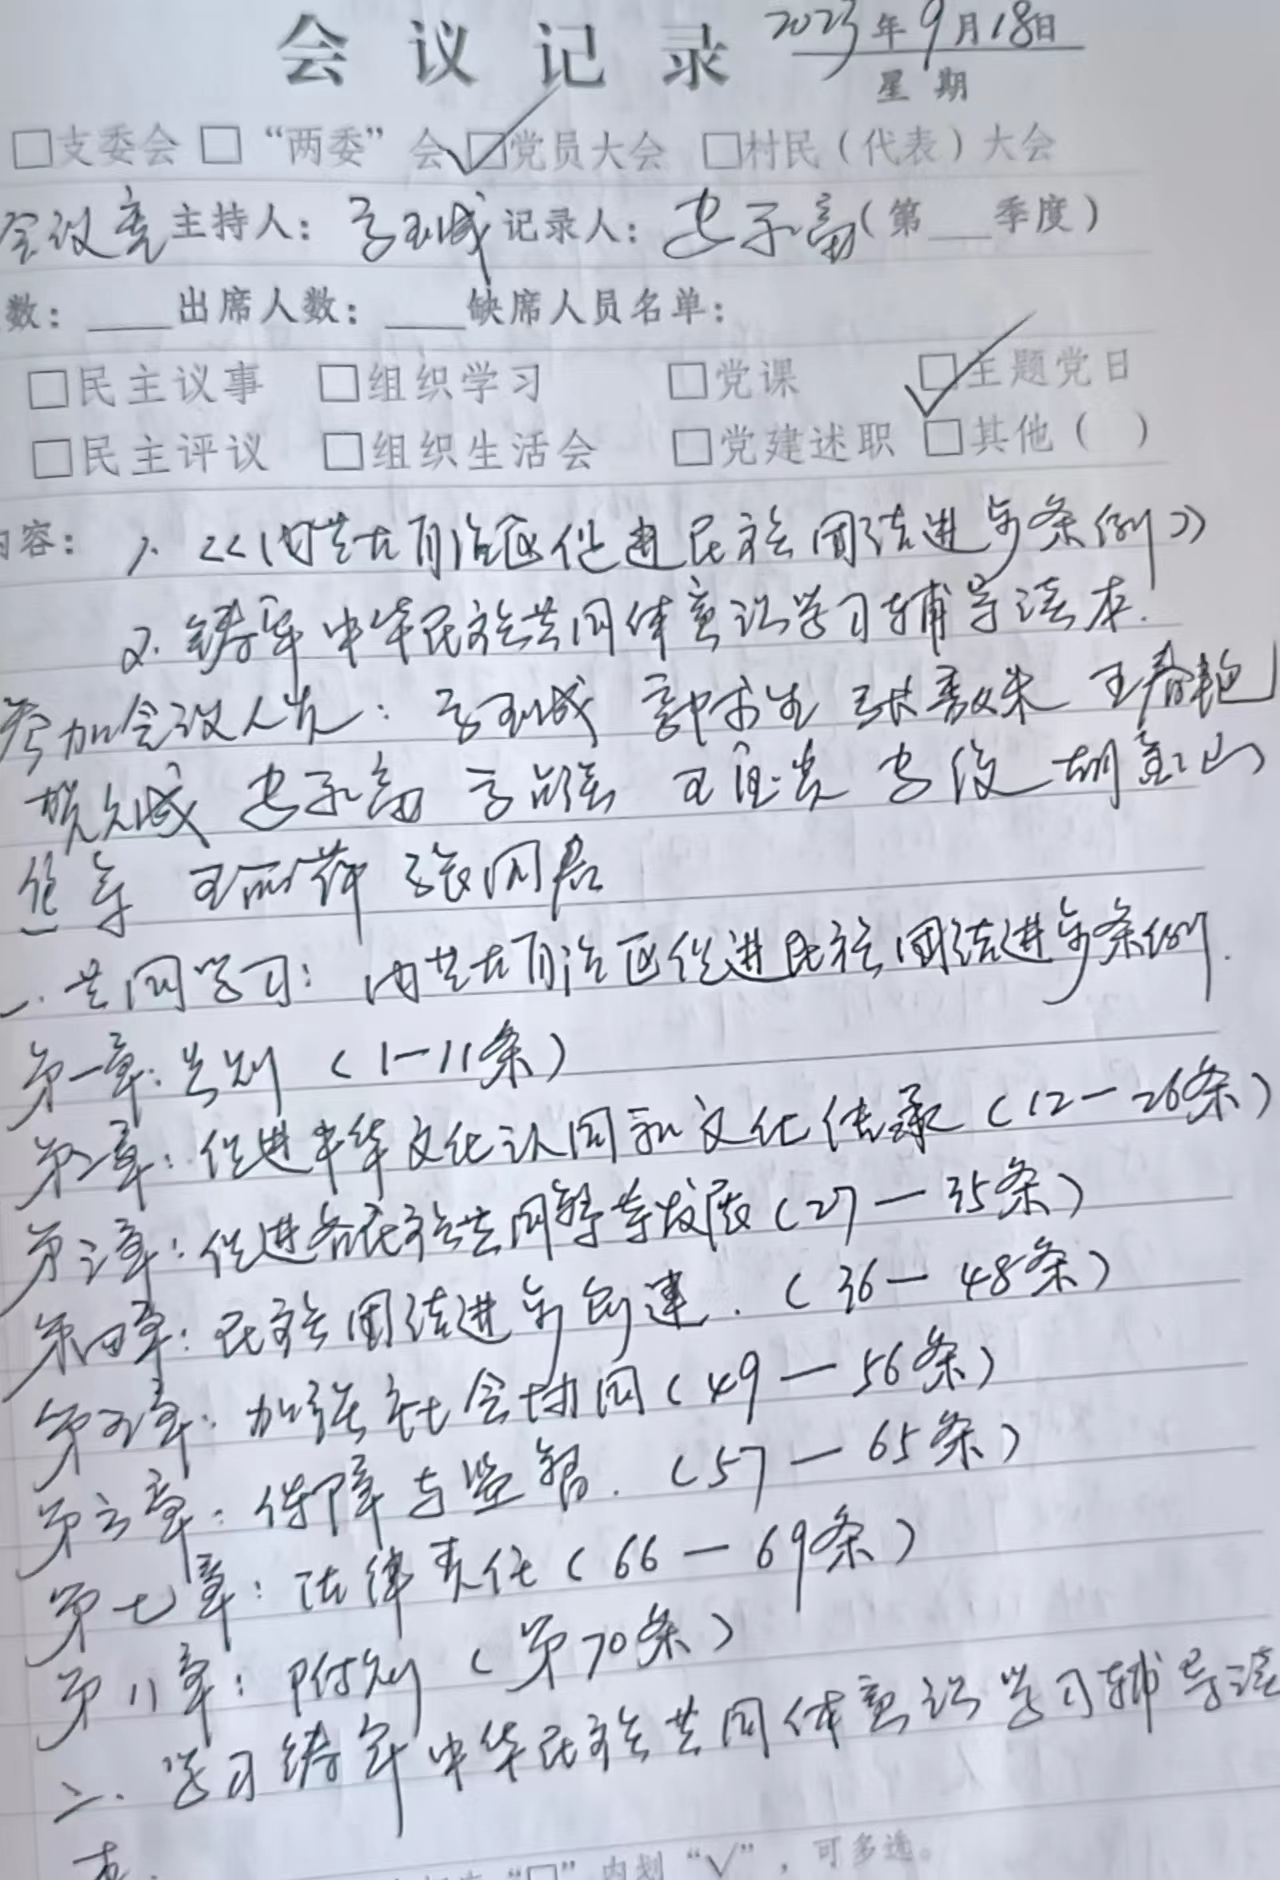 会议记录 2023年9月18日
星期
□支委会 □“两委”会 ☑党员大会 □村民(代表)大会
会议室 主持人: 玉成 记录人: 子富(第___季度)
数:____出席人数:____缺席人员名单:
□民主议事 □组织学习 □党课 ☑主题党日
□民主评议 □组织生活会 □党建述职 □其他( )
内容: 1.《内蒙古自治区促进民族团结进步条例》
2.铸牢中华民族共同体意识学习辅导读本.
参加会议人员: 玉成 生 张 王春艳
成 子富 王 俊 胡金山
王丽萍 张
一.共同学习: 内蒙古自治区促进民族团结进步条例.
第一章:总则 (1—11条)
第二章:促进中华文化认同和文化传承(12—26条)
第三章:促进各民族共同繁荣发展(27—35条)
第四章:民族团结进步创建.(36—48条)
第五章:加强社会协同(49—56条)
第六章:保障与监督.(57—65条)
第七章:法律责任(66—69条)
第八章:附则(第70条)
二.学习铸牢中华民族共同体意识学习辅导读
本.
“□”内划“√”,可多选。